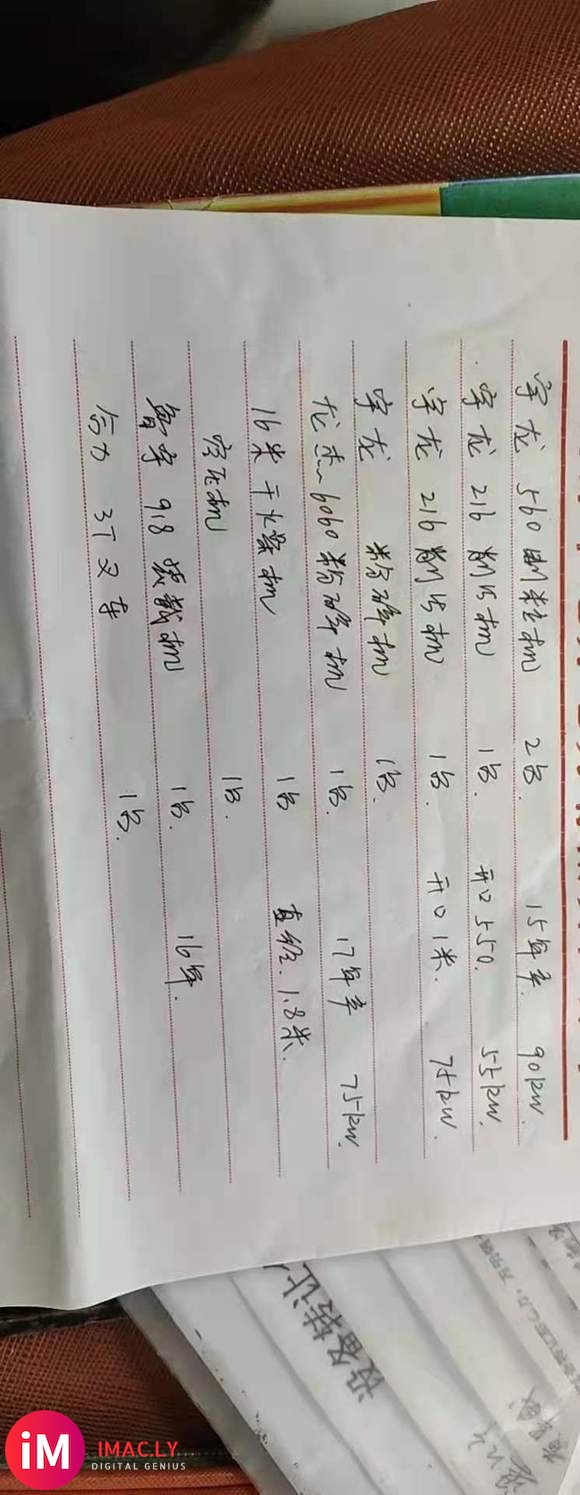 宇龙 560 制粒机 2台. 15年产. 90kw.
宇龙 216 削片机 1台. 开口550. 55kw.
宇龙 216 削片机 1台. 开口1米. 75kw.
宇龙 粉碎机 1台.
龙杰 6060 粉碎机 1台. 17年产 75kw.
16米干燥机 1台 直径.1.8米.
空压机 1台.
鲁宇 918 装载机 1台. 16年.
合力 3T叉车 1台.
设备转让
iM
IMAC.LY
DIGITAL GENIUS